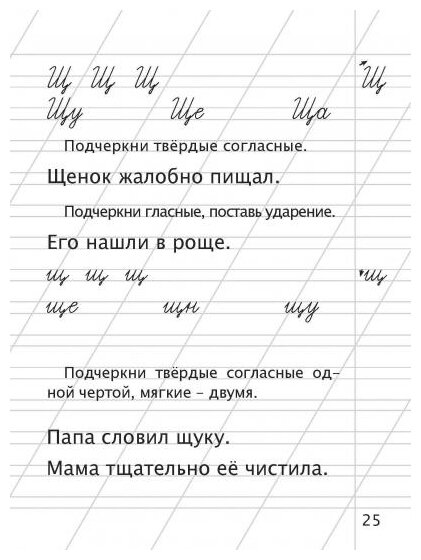 Щ Щ Щ Щ
Щу Ще Ща
Подчеркни твёрдые согласные.
Щенок жалобно пищал.
Подчеркни гласные, поставь ударение.
Его нашли в роще.
щ щ щ щ
ще щн щу
Подчеркни твёрдые согласные од–
ной чертой, мягкие – двумя.
Папа словил щуку.
Мама тщательно её чистила.
25